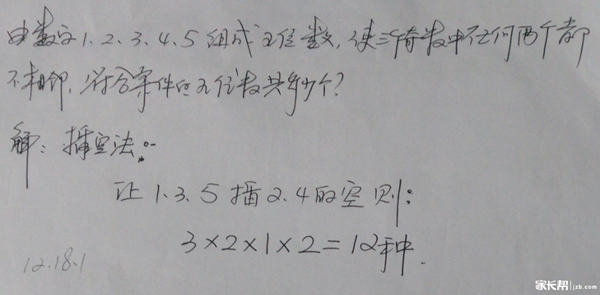 由数字1.2.3.4.5组成五位数,使三个奇数中任何两个都
不相邻,符合条件的五位数共多少个?
解:插空法:
让1.3.5插2.4的空则:
3×2×1×2=12种.
12.18.1
家长帮 jzb.com